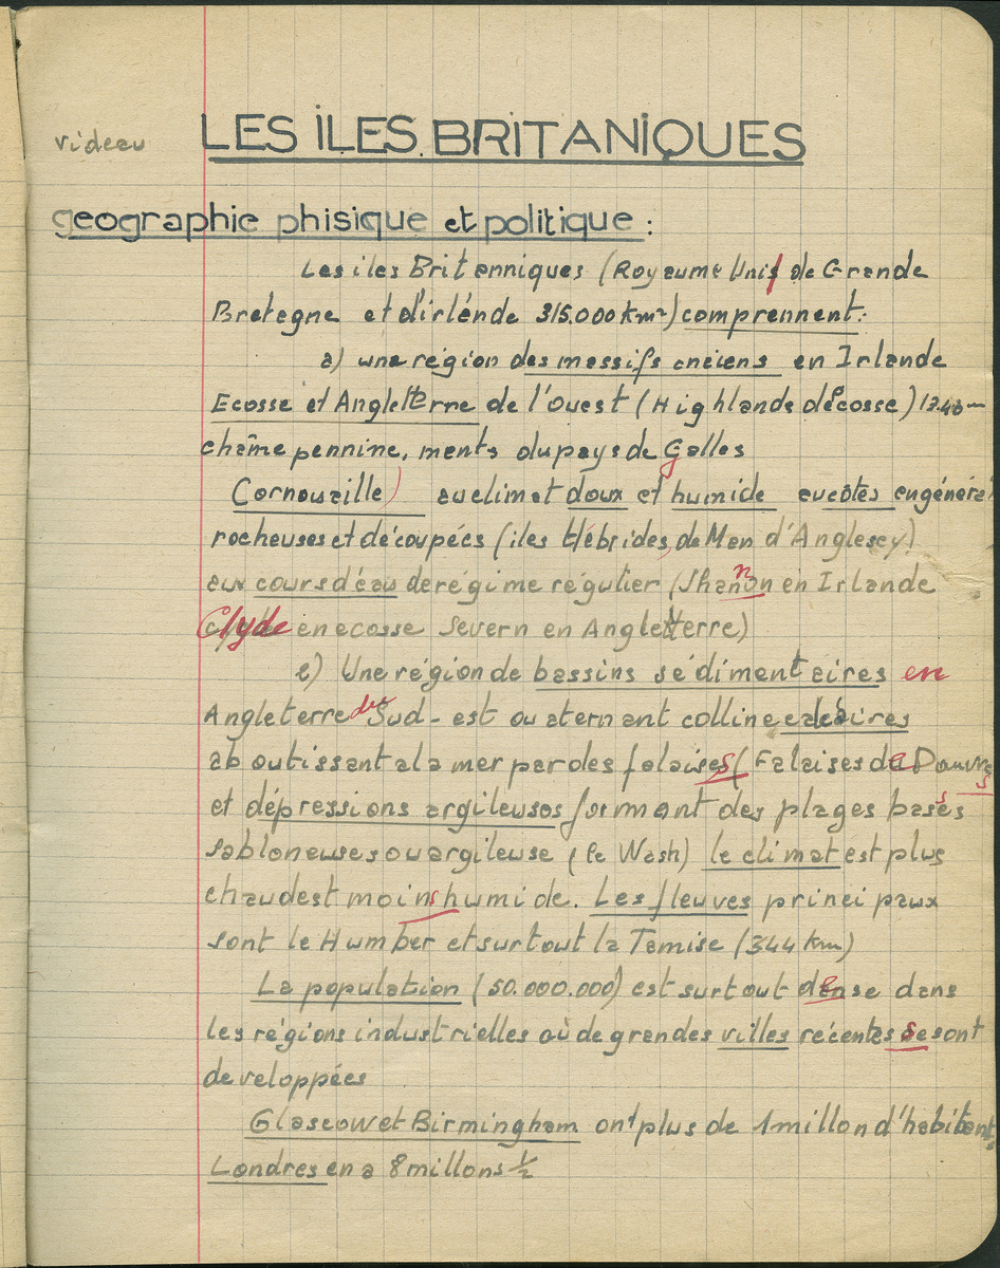 videau
LES ILES BRITANIQUES
geographie phisique et politique :
Les iles Britanniques (Royaume Unis de Grande
Bretagne et d'irlénde 315.000 km²) comprennent:
a) une région des massifs anciens en Irlande
Ecosse et Angleterre de l'Ouest (Highlands d'écosse)
chaîne pennine, monts du pays de Galles
Cornouaille) au climat doux et humide au côtes en général
rocheuses et découpées (iles Hébrides, de Man d'Anglesey)
aux cours d'eau de régime régulier (Shanon en Irlande
Clyde en ecosse Severn en Angleterre)
e) Une région de bassins sédimentaires en
Angleterre du Sud-est ou aternant colline calcaires
aboutissant a la mer par des falaises (Falaises de Douvres
et dépressions argileuses formant des plages basses
sabloneuses ou argileuse (le Wash) le climat est plus
chaud est moins humide. Les fleuves principaux
sont le Humber et surtout la Tamise (344 km)
La population (50.000.000) est surtout dense dans
les régions industrielles où de grandes villes récentes se sont
developpées
Glascow et Birmingham ont plus de 1 millon d'habitants
Londres en a 8 millons ½